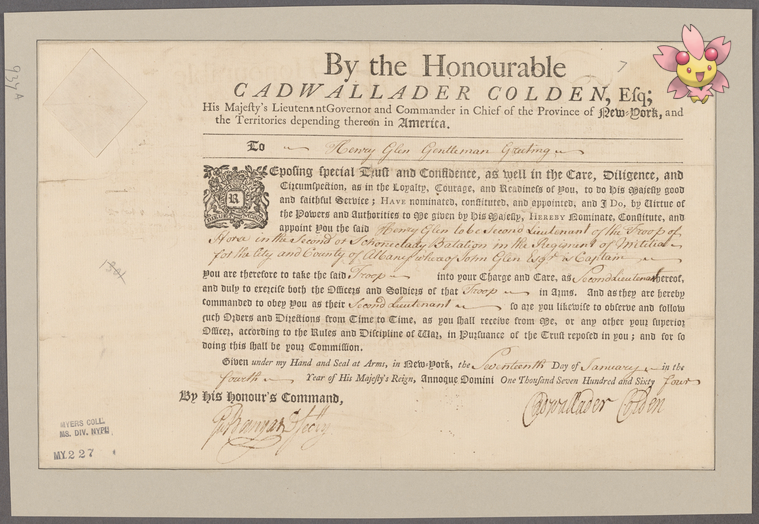 By the Honourable
CADWALLADER COLDEN, Esq;
His Majesty's Lieutenant Governor and Commander in Chief of the Province of New-York, and
the Territories depending thereon in America.
To Henry Glen Gentleman Greeting
Reposing special Trust and Confidence, as well in the Care, Diligence, and
Circumspection, as in the Loyalty, Courage, and Readiness of You, to do His Majesty good
and faithful Service; Have nominated, constituted, and appointed, and I Do, by Virtue of
the Powers and Authorities to Me given by His Majesty, Hereby Nominate, Constitute, and
appoint You the said Henry Glen to be Second Lieutenant of the Troop of
Horse in the Second or Schonectady Batalion in the Regiment of Militia
for the City and County of Albany whereof John Glen Esqr. is Captain
You are therefore to take the said Troop into your Charge and Care, as Second Lieutenant thereof,
and duly to exercise both the Officers and Soldiers of that Troop in Arms. And as they are hereby
commanded to obey You as their Second Lieutenant so are you likewise to observe and follow
such Orders and Directions from Time to Time, as you shall receive from Me, or any other your superior
Officer, according to the Rules and Discipline of War, in Pursuance of the Trust reposed in you; and for so
doing this shall be your Commission.
Given under my Hand and Seal at Arms, in New-York, the Seventeenth Day of January in the
fourth Year of His Majesty's Reign, Annoque Domini One Thousand Seven Hundred and Sixty four
By His Honour's Command,
Cadwallader Colden
Gw Banyar D Secry
MYERS COLL.
MS. DIV. NYPL
MY 227
937A
1301
7